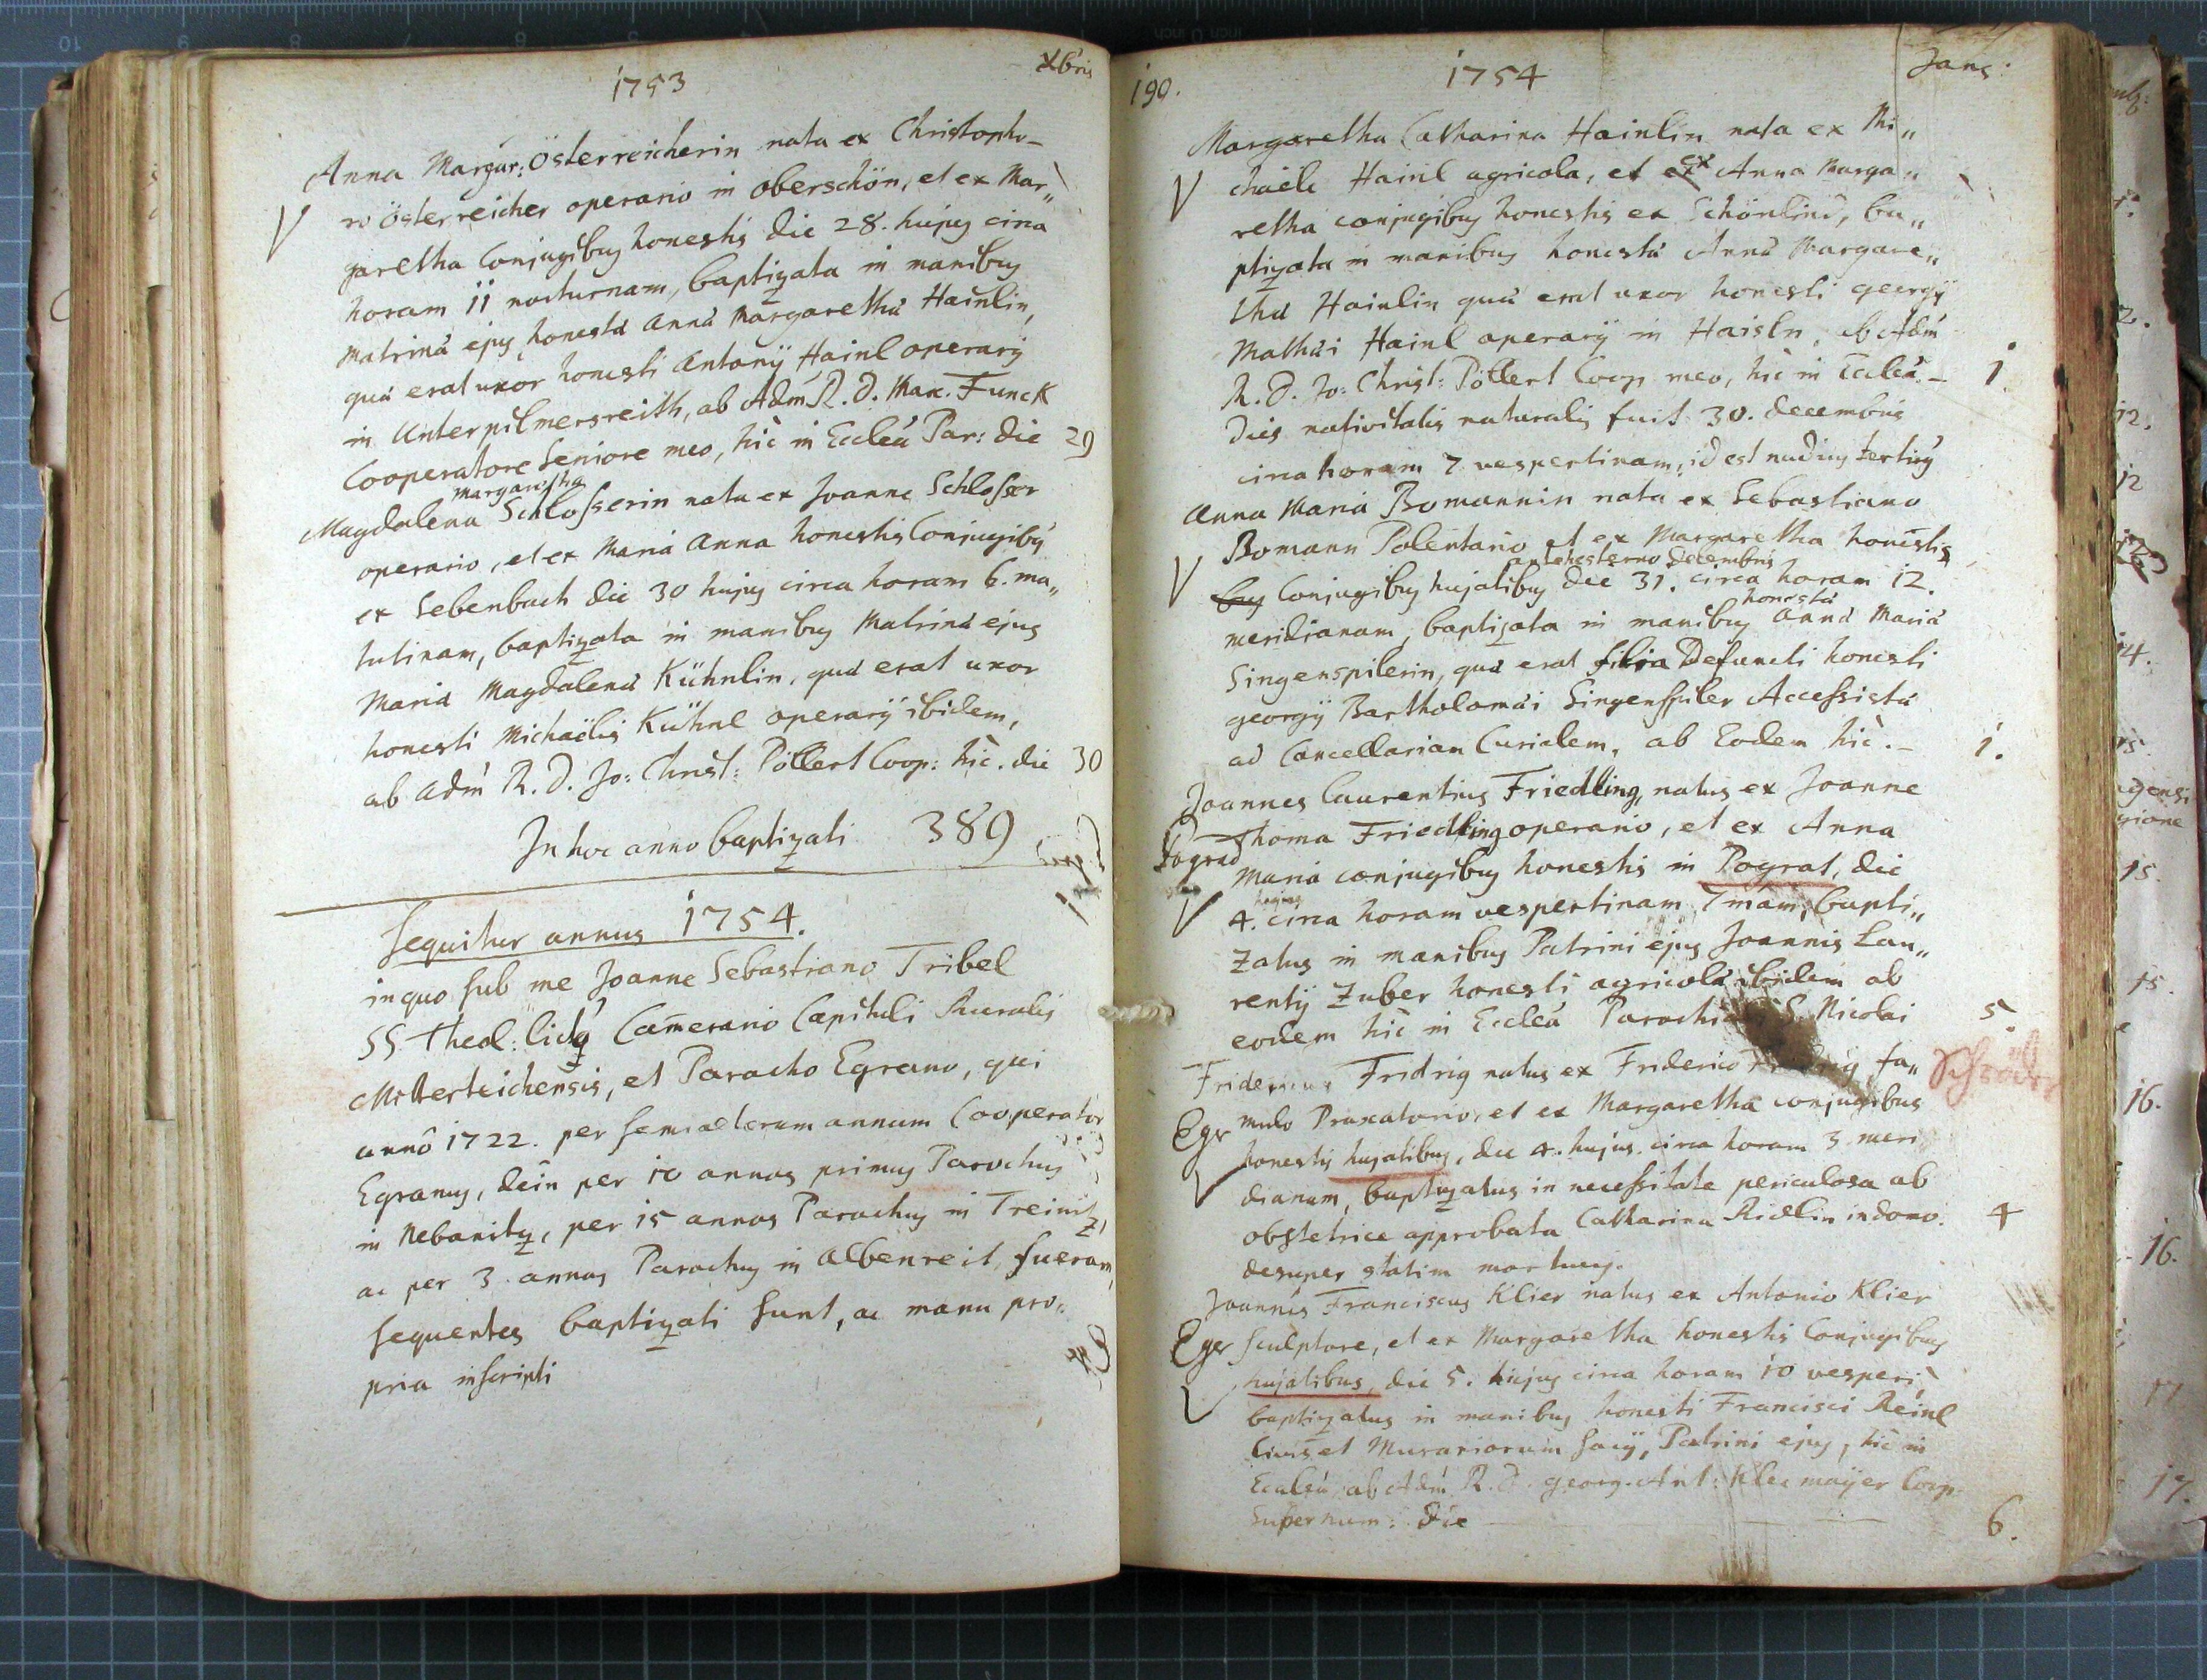 1753
Xbris
Anna Margar: Österreicherin nata ex Christopho-
ro Österreicher operario in oberschön, et ex Mar„
garetha Conjugibus honestis die 28. hujus circa
horam 11 nocturnam, baptizata in manibus
Matrinâ ejus honestâ Annâ Margarethâ Hainlin,
quâ erat uxor honesti Antonÿ Hainl operarÿ
in Unterpilmersreith, ab Adm R. D. Max. Funck
Cooperatore Seniore meo, hìc in Eccleâ Par: die 29
Margaretha
Magdalena Schlosserin nata ex Joanne Schlosser
operario, et ex Mariâ Anna honestis Conjugibus
ex Sebenbach die 30 hujus circa horam 6. ma„
tutinam, baptizata in manibus Matrinâ ejus
Mariâ Magdalenâ Kühnlin, quâ erat uxor
honesti Michaëlis Kühnl operarÿ ibidem,
ab Adm R. D. Jo: Christ: Pöllert Coop: hìc. die 30
In hoc anno baptizati 389
Sequitur annus 1754.
in quo sub me Joanne Sebastiano Tribel
SS. Theol: Camerario Capituli Ruralis
Mitterteichensis, et Parocho Egrano, qui
annô 1722. per annum Cooperator
Egranus, dein per 10 annos primus Parochus
in Nebanitz, per 15 annos Parochus in Treinitz,
ac per 3 annos Parochus in Albenreit fueram,
sequentes baptizati sunt, ac manu pro„
pria inscripti
190.
1754
Jans:
Margaretha Catharina Hainlin nata ex Mi„
chaële Hainl agricola, et ex Anna Marga„
retha conjugibus honestis ex Schönlind, ba„
ptizata in manibus honestâ Annâ Margare„
thâ Hainlin quâ erat uxor honesti georgÿ
Mathâi Hainl operarÿ in Haisln, ab Adm
R. D. Jo: Christ: Pöllert Coop meo, hìc in Eccleâ. – 1.
Dies nativitatis naturalis fuit 30. decembris
circa horam 7 vespertinam, id est nudius tertius
Anna Maria Bomannin nata ex Sebastiano
Bomann Polentario et ex Margaretha honestis
antehesterno Decembris
bus Conjugibus hujatibus die 31. circa horam 12.
honestâ
meridianam, baptizata in manibus Annâ Mariâ
Singenspilerin, quâ erat filia Defuncti honesti
georgÿ Bartholomâi Singenspiler Accessistâ
ad Cancellariam Curialem, ab Eodem hìc. – 1.
Joannes Laurentius Friedling, natus ex Joanne
Thoma Friedling operario, et ex Anna
Pograd
Maria conjugibus honestis in Pograt, die
hujus
4. circa horam vespertinam 7mam, bapti„
zatus in manibus Patrini ejus Joannis Lau„
rentÿ Zuber honesti agricolâ ibidem ab
eodem hìc in Eccleâ S. Nicolai 5.
Fridericus Fridrig natus ex Friderico fa„
Eger mulo Praxatorio, et ex Margaretha conjugibus
honestis hujatibus, die 4. hujus. circa horam 3 meri
dianam, baptizatus in necessitate periculosa ab
obstetrice approbata Catharina Ridlin in domo. 4
desuper statim mortuus.
Joannes Franciscus Klier natus ex Antonio Klier
Eger sculptore, et ex Margaretha honestis Conjugibus
hujatibus, die 5. hujus circa horam 10 vesperi
baptizatus in manibus honesti Francisci Reinl
Civis et Murariorum Socÿ, Patrini ejus, hìc in
Eccleâ, ab Adm. R. D. georg. Ant: Klee maÿer Coop.
Supernum: Die 6.